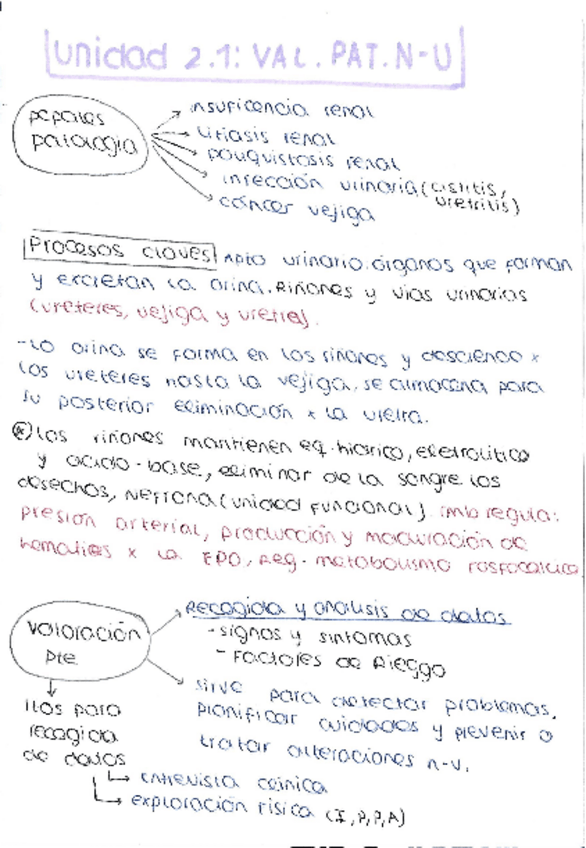 Unidad 2.1: VAL. PAT. N-U
pcpales patología
→ insuficencia renal
→ Litiasis renal
→ pouquistosis renal
→ infección urinaria (cistitis, uretritis)
→ cáncer vejiga
Procesos claves Apto urinario. órganos que forman
y excretan la orina. Riñones y vías urinarias
(uréteres, vejiga y uretra).
- La orina se forma en los riñones y desciende x
los ureteres hasta la vejiga. se almacena para
su posterior eliminación x la uretra.
* los riñones mantienen eq. hídrico, eletrolítico
y ácido-base, eliminar de la sangre los
desechos, nefrona (unidad funcional). regula:
presión arterial, producción y maduración de
hematíes x la EPO, Reg. metabolismo fosfocálcico
valoración pte
→ Recogida y análisis de datos
- signos y síntomas
- Factores de Rieggo
→ sirve para detectar problemas,
planificar cuidados y prevenir o
tratar alteraciones n-u.
↓
itos para
recogida
de datos
→ entrevista clínica
→ exploración física (I, P, P, A)